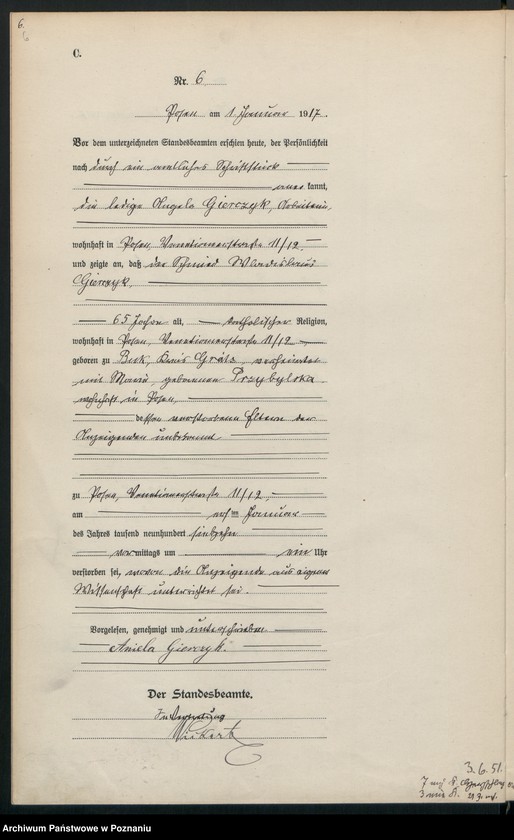 6.
6
C.
Nr. 6
Posen am 1. Januar 1917.
Vor dem unterzeichneten Standesbeamten erschien heute, der Persönlichkeit
nach durch ein amtliches Schriftstück
anerkannt,
die ledige Angela Gierczyk, Arbeiterin,
wohnhaft in Posen, Venetianerstraße 11/12.
und zeigte an, daß der Schmied Wladislaus
Gierczyk,
65 Jahre alt, katholischer Religion,
wohnhaft in Posen, Venetianerstraße 11/12
geboren zu Buk, Kreis Grätz, verheiratet
mit Marie geborenen Przybylska
wohnhaft in Posen,
dessen verstorbene Eltern der
Anzeigenden unbekannt
zu Posen, Venetianerstraße 11/12,
am Januar
des Jahres tausend neunhundert siebzehn
vormittags um ein Uhr
verstorben sei, wovon die Anzeigende aus eigener
Wissenschaft unterrichtet sei.
Vorgelesen, genehmigt und unterschrieben
Aniela Gierczyk.
Der Standesbeamte.
In Vertretung
3.6.51.
Archiwum Państwowe w Poznaniu